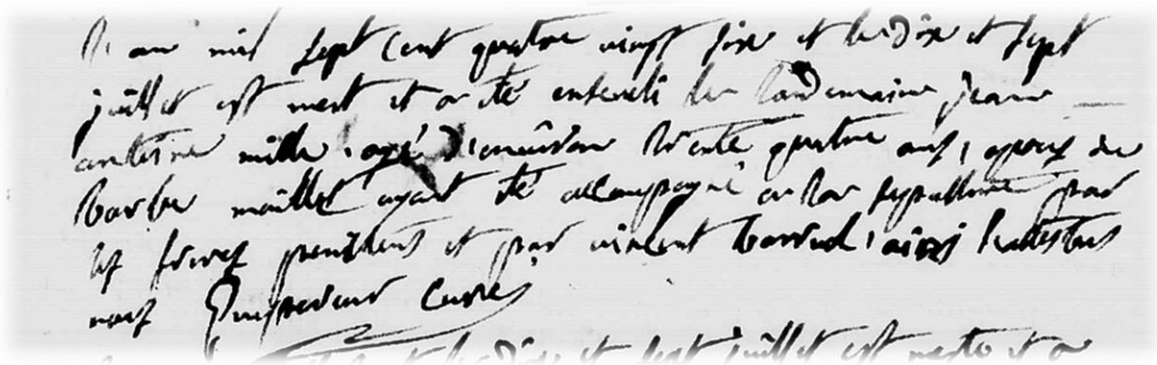 l'an mil sept cent quatre vingt six et le dix et sept
juillet est mort et a été enseveli le landemain jean
antoine mille, agé d'environ trente quatre ans, epoux de
barbe maillet ayant été accompagné a la sepulture par
les freres penitens et par vincent barrud, ainsi l'attestons
nous curé
et le dix et sept juillet est morte et a